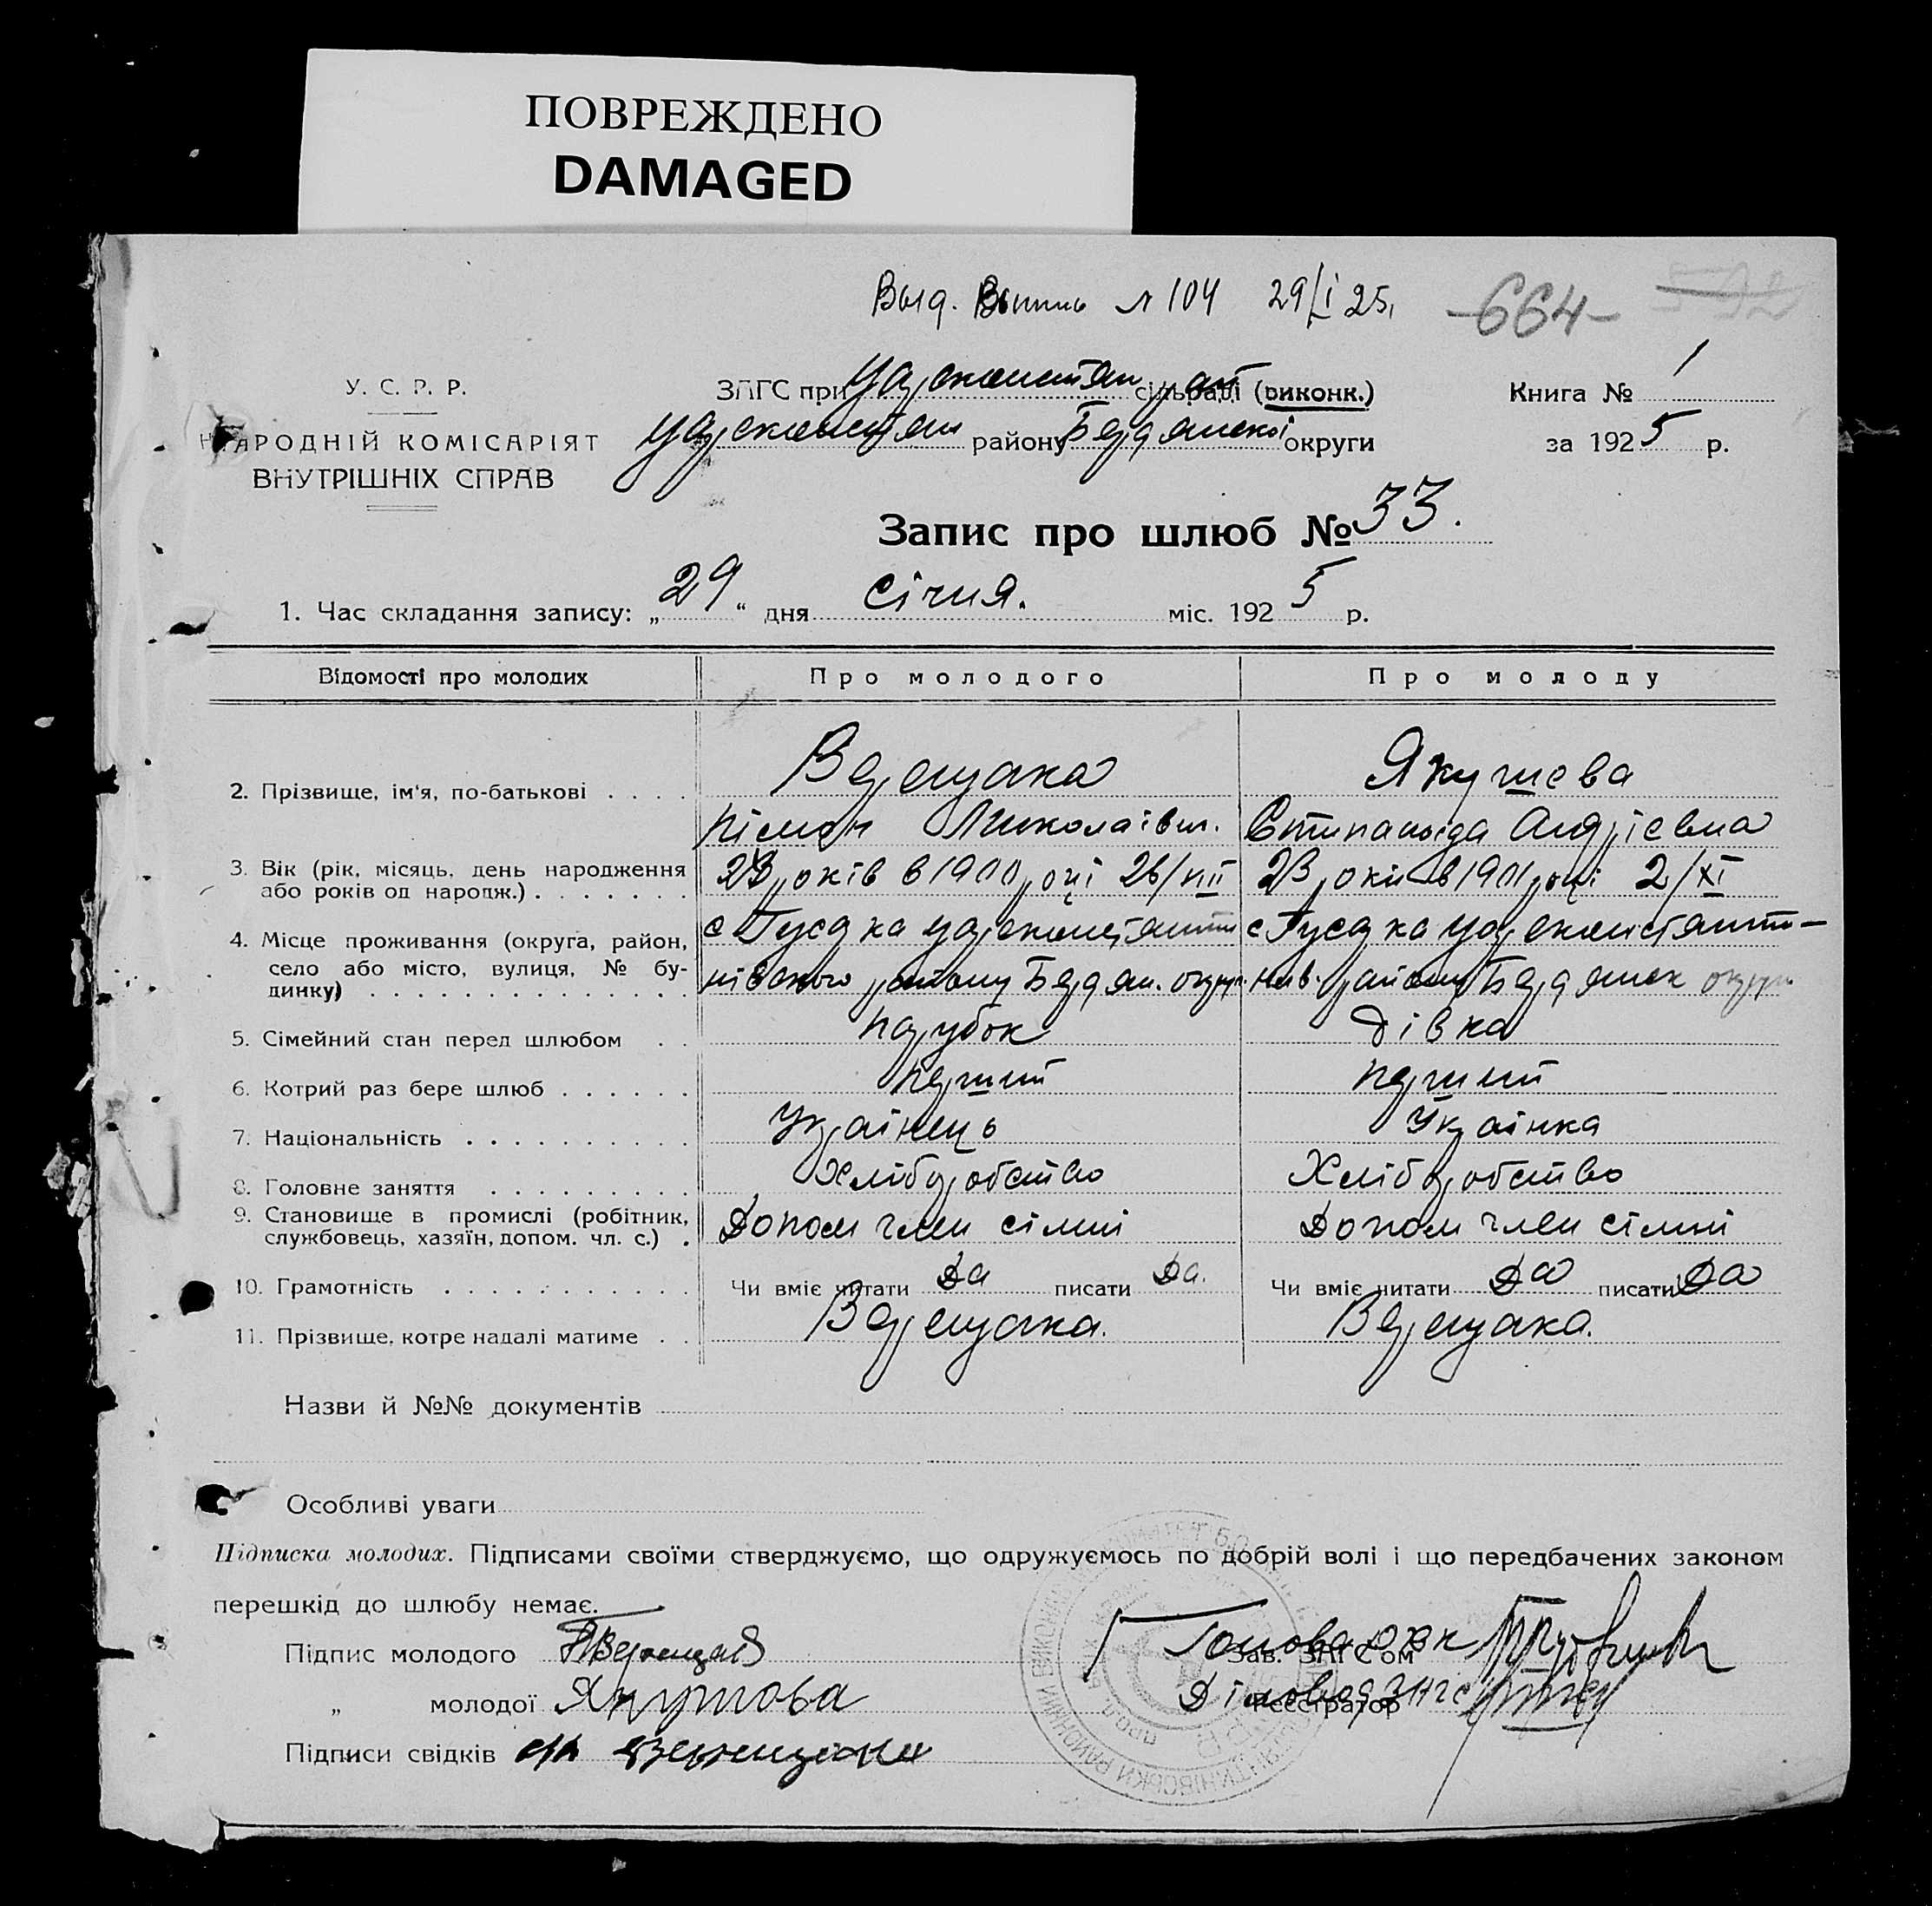 ПОВРЕЖДЕНО
DAMAGED
Выд. № 104 29/I 25, -664-
У. С. Р. Р.
ЗАГС при Цареконстан сільраді (виконк.) Книга № 1
НАРОДНІЙ КОМІСАРІЯТ
ВНУТРІШНІХ СПРАВ
Цареконстан району Бердянської округи за 1925 р.
Запис про шлюб № 33.
1. Час складання запису: „29“ дня січня. міс. 1925 р.
Відомості про молодих Про молодого Про молоду
2. Прізвище, ім'я, по-батькові . . . . Верещака Якушева
Пімон Миколаівич. Степанида Андрієвна
3. Вік (рік, місяць, день народження
або років од народж.) . . . . . . . років в 1900 році 26/VII 23 роки в 1901 році 2/XI
4. Місце проживання (округа, район,
село або місто, вулиця, № будинку) . . . . . . . . . . . . . . с Гусарка Цареконстанти
нівського району Бердян. округи с Гусарка Цареконстанти-
нів. району Бердянск округи
5. Сімейний стан перед шлюбом . . парубок дівка
6. Котрий раз бере шлюб . . . . . . перший перший
7. Національність . . . . . . . . . . Українець Українка
8. Головне заняття . . . . . . . . . Хліборобство Хліборобство
9. Становище в промислі (робітник,
службовець, хазяїн, допом. чл. с.) . Допом член сімні Допом член сімні
10. Грамотність . . . . . . . . . . . Чи вміє читати Да писати Да. Чи вміє читати Да писати Да
11. Прізвище, котре надалі матиме . . Верещака. Верещака.
Назви й №№ документів
Особливі уваги
Підписка молодих. Підписами своїми стверджуємо, що одружуємось по добрій волі і що передбачених законом
перешкід до шлюбу немає.
Підпис молодого Зав. ЗАГС'ом
„ молодої Якушова Реєстратор
Підписи свідків Верещака